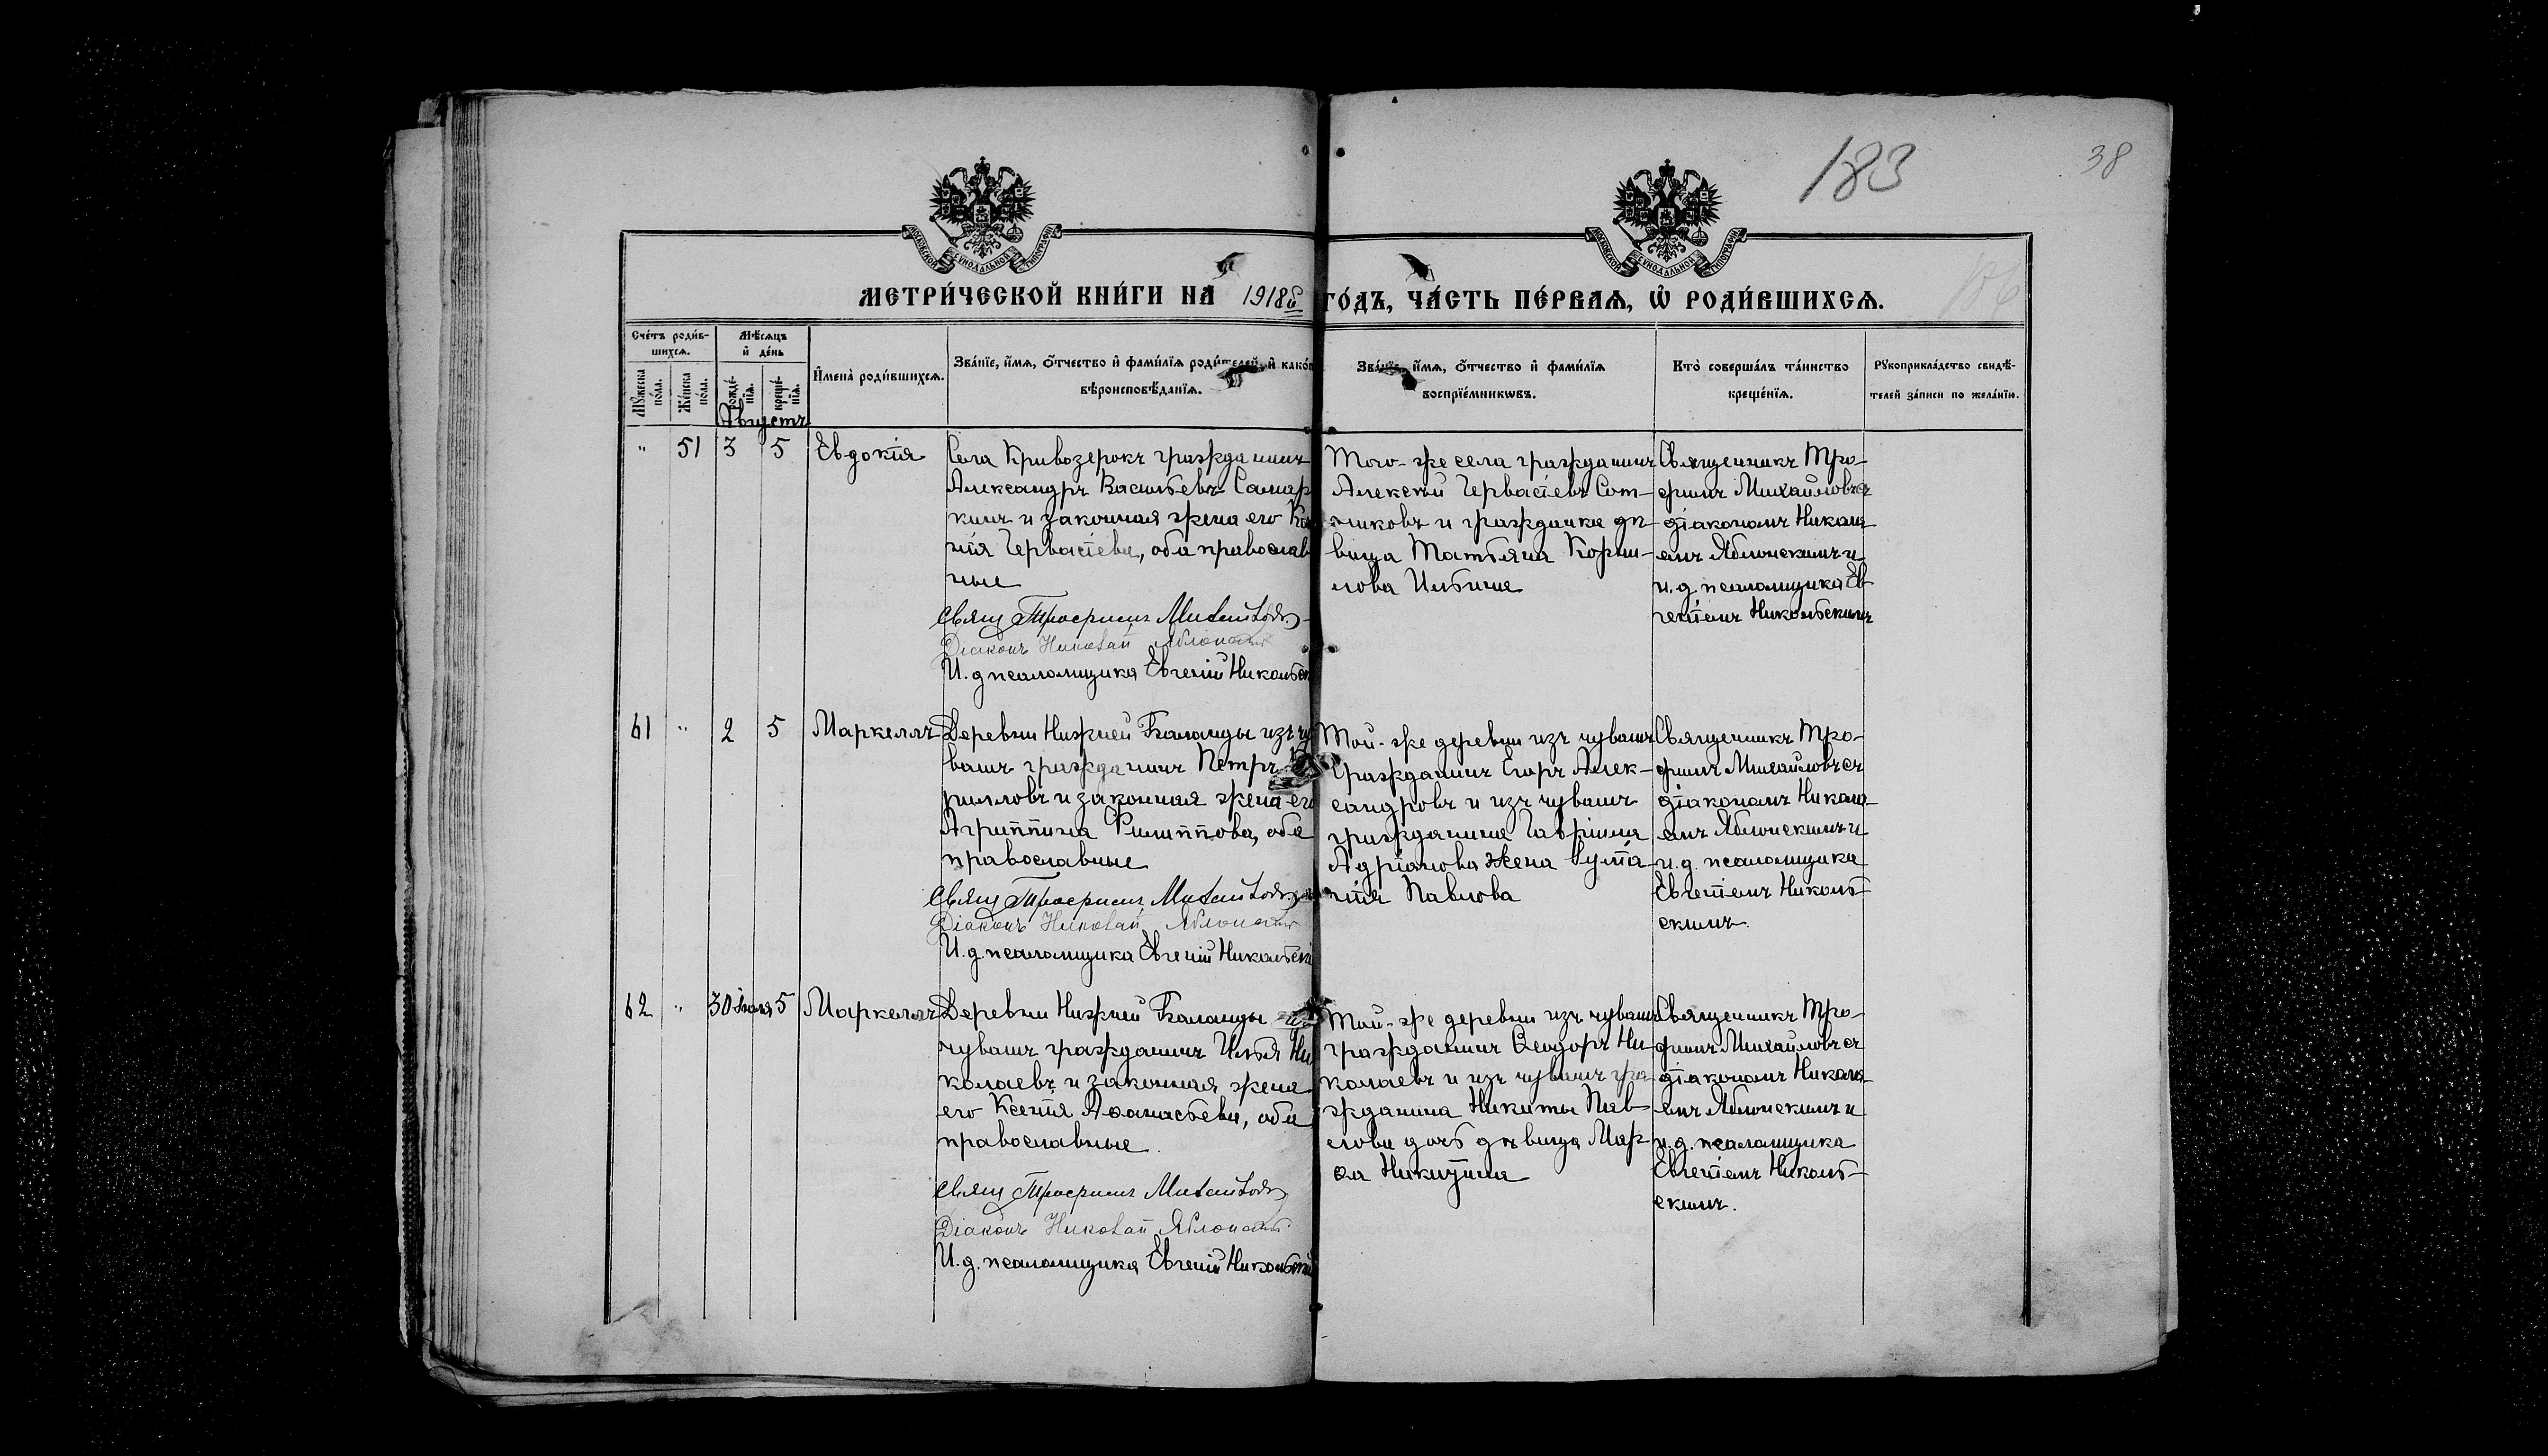 183
38
МОСКОВСКОЙ СѴНОДАЛЬНОЙ ТИПОГРАФІИ
МОСКОВСКОЙ СѴНОДАЛЬНОЙ ТИПОГРАФІИ
МЕТРИ́ЧЕСКОЙ КНИ́ГИ НА 1918й ГО́ДЪ, ЧА́СТЬ ПЕ́РВАѦ, Ѡ҆ РОДИ́ВШИХСѦ.
Сче́тъ роди́в-
шихсѧ.
Мꙋ́жеска по́ла.
Же́нска по́ла.
Мѣ́сѧцъ
и҆ де́нь
рожде́-
нїѧ.
креще́-
нїѧ.
И҆мена̀ роди́вшихсѧ.
Зва́нїе, и҆́мѧ, ѻ҆́тчество и҆ фами́лїѧ роди́телей, и҆ како́
вѣроисповѣ́данїѧ.
Зва́нїе, и҆́мѧ, ѻ҆́тчество и҆ фами́лїѧ
воспрїе́мникѡвъ.
Кто̀ соверша́лъ та́инство
креще́нїѧ.
Рꙋкоприкла́дство свидѣ́-
телей за́писи по жела́нїю.
Августъ
" 51 3 5 Евдокія
Села Кривозерокъ гражданинъ
Александръ Васильевъ Самар
кинъ и законная жена его
нія Гервасіева, оба православ
ные
Свящ Трофимъ Михайловъ
Діаконъ Николай Яблонскій
И. д псаломщика Евгеній Никольск
Того-же села гражданинъ
Алексѣй Гервасіевъ Сот-
никовъ и гражданка дѣ-
вица Татьяна Корни-
лова Ильина
Священникъ Тро-
фимъ Михайловъ съ
діакономъ Никола-
емъ Яблонскимъ и
и. д. псаломщика Ев-
геніемъ Никольскимъ
61 " 2 5 Маркеллъ
Деревни Нижней Баланды изъ чу
вашъ гражданинъ Петръ
рилловъ и законная жена его
Агриппина Филиппова, оба
православные
Свящ Трофимъ Михайловъ
Діаконъ Николай Яблонскій
И. д. псаломщика Евгеній Никольскі
Той-же деревни изъ чувашъ
гражданинъ Егоръ Алек-
сандровъ и изъ чувашъ
гражданина Гавріила
Адріанова жена Румпа-
нія Павлова
Священникъ Тро-
фимъ Михайловъ съ
діакономъ Никола-
емъ Яблонскимъ и
и. д. псаломщика
Евгеніемъ Николь-
скимъ.
62 " 30 Іюля 5 Маркеллъ
Деревни Нижней Баланды
чувашъ гражданинъ Илья Ни
колаевъ и законная жена
его Ксенія Аѳанасьева, оба
православные.
Свящ Трофимъ Михайловъ
Діаконъ Николай Яблонскій
И. д. псаломщика Евгеній Никольскій
Той-же деревни изъ чувашъ
гражданинъ Ѳеодоръ Ни-
колаевъ и изъ чувашъ гра-
жданина Никиты Пав-
лова дочь дѣвица Мар-
ѳа Никитина
Священникъ Тро-
фимъ Михайловъ съ
діакономъ Никола-
емъ Яблонскимъ и
и. д. псаломщика
Евгеніемъ Николь-
скимъ.